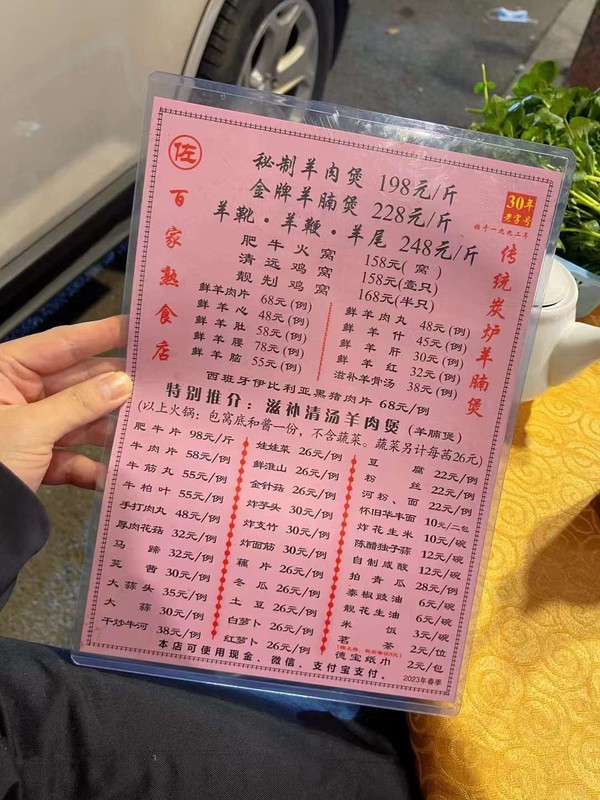 佐
百家熟食店
30年
老字号
始于一九九三年
传统炭炉羊腩煲
秘制羊肉煲 198元/斤
金牌羊腩煲 228元/斤
羊靴·羊鞭·羊尾 248元/斤
肥牛火窝 158元(窝)
清远鸡窝 158元(壹只)
靓光鸡窝 168元(半只)
鲜羊肉片 68元(例)
鲜羊心 48元(例)
鲜羊肚 58元(例)
鲜羊腰 78元(例)
鲜羊脑 55元(例)
鲜羊肉丸 48元(例)
鲜羊什 45元(例)
鲜羊肝 30元(例)
鲜羊红 32元(例)
滋补羊骨汤 38元(例)
西班牙伊比利亚黑猪肉片 68元/例
特别推介：滋补清汤羊肉煲(羊腩煲)
(以上火锅：包窝底和酱一份，不含蔬菜。蔬菜另计每茜26元)
肥牛片 98元/斤
牛肉片 58元/例
牛筋丸 55元/例
牛柏叶 55元/例
手打肉丸 48元/例
厚肉花菇 32元/例
马蹄 32元/例
芫茜 30元/例
大蒜头 35元/例
大蒜 30元/例
干炒牛河 38元/例
娃娃菜 26元/例
鲜淮山 26元/例
金针菇 26元/例
炸芋头 30元/例
炸支竹 30元/例
炸面筋 30元/例
藕片 26元/例
冬瓜 26元/例
土豆 26元/例
白萝卜 26元/例
红萝卜 26元/例
豆腐 22元/例
粉丝 22元/例
河粉、面 22元/例
怀旧华丰面 10元/二包
炸花生米 10元/碗
陈醋独子蒜 12元/碗
自制咸酸 12元/碗
拍青瓜 28元/例
泰椒豉油 6元/碗
靓花生油 6元/碗
米饭 3元/碗
茗茶 2元/位
德宝纸巾 2元/包
本店可使用现金、微信、支付宝支付。
2023年春季